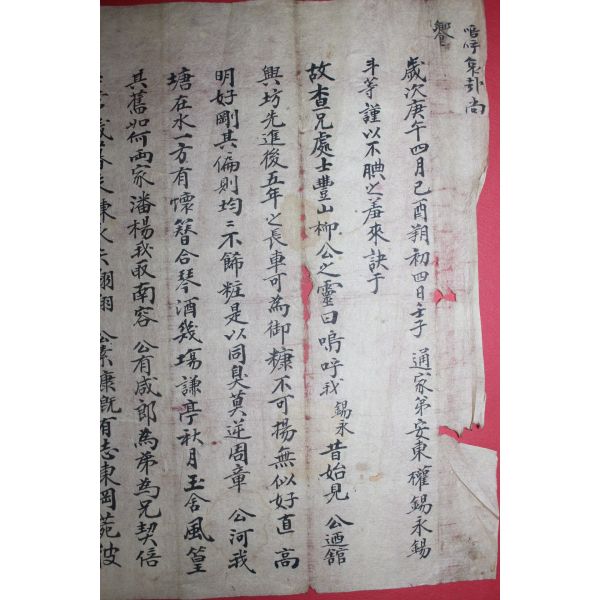 嗚呼哀哉尚
饗
歲次庚午四月己酉朔初四日壬子 通家弟安東權錫永錫
斗等謹以不腆之羞來訣于
故查兄處士豊山柳公之靈曰嗚呼我錫永昔始見 公迺舘
與坊先進後五年之長車可為御糠不可揚無似好直 高
明好剛其偏則均三不飾粧是以同臭莫逆周章 公河我
塘在水一方有懷簪合琴酒幾塲謙亭秋月玉舍風篁
其舊如何兩家潘楊我取南容 公有咸郎為弟為兄契倍
公素康旣有志東岡菀彼